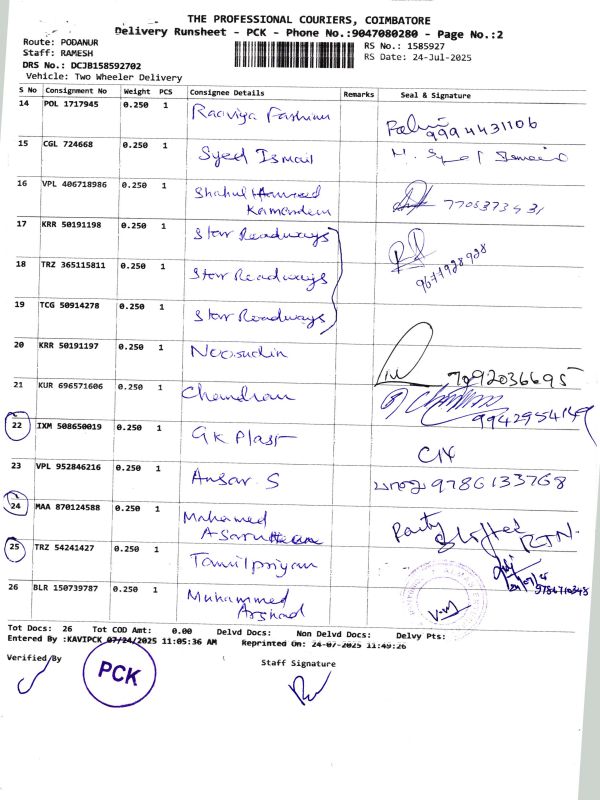 THE PROFESSIONAL COURIERS, COIMBATORE
Delivery Runsheet - PCK - Phone No.:9047080280 - Page No.:2
Route: PODANUR
RS No.: 1585927
Staff: RAMESH
RS Date: 24-Jul-2025
DRS No.: DCJB158592702
Vehicle: Two Wheeler Delivery
S No Consignment No Weight PCS Consignee Details Remarks Seal & Signature
14 POL 1717945 0.250 1 Raaviya Fashion
9994431106
15 CGL 724668 0.250 1 Syed Ismail
16 VPL 406718986 0.250 1 Shahul Hameed
7705373431
17 KRR 50191198 0.250 1 Star Roadways
9677928928
18 TRZ 365115811 0.250 1 Star Roadways
19 TCG 50914278 0.250 1 Star Roadways
20 KRR 50191197 0.250 1 Noorudin
7092036695
21 KUR 696571606 0.250 1 Chandran
9942954149
22 IXM 508650019 0.250 1 GK Plast
23 VPL 952846216 0.250 1 Ansar S 9786133768
24 MAA 870124588 0.250 1 Mahamed Party Shifted RTN
25 TRZ 54241427 0.250 1 Tamilpriyan
26 BLR 150739787 0.250 1 Muhammed
Arshad
Tot Docs: 26 Tot COD Amt: 0.00 Delvd Docs: Non Delvd Docs: Delvy Pts:
Entered By :KAVIPCK 07/24/2025 11:05:36 AM Reprinted On: 24-07-2025 11:49:26
Verified By
PCK
Staff Signature